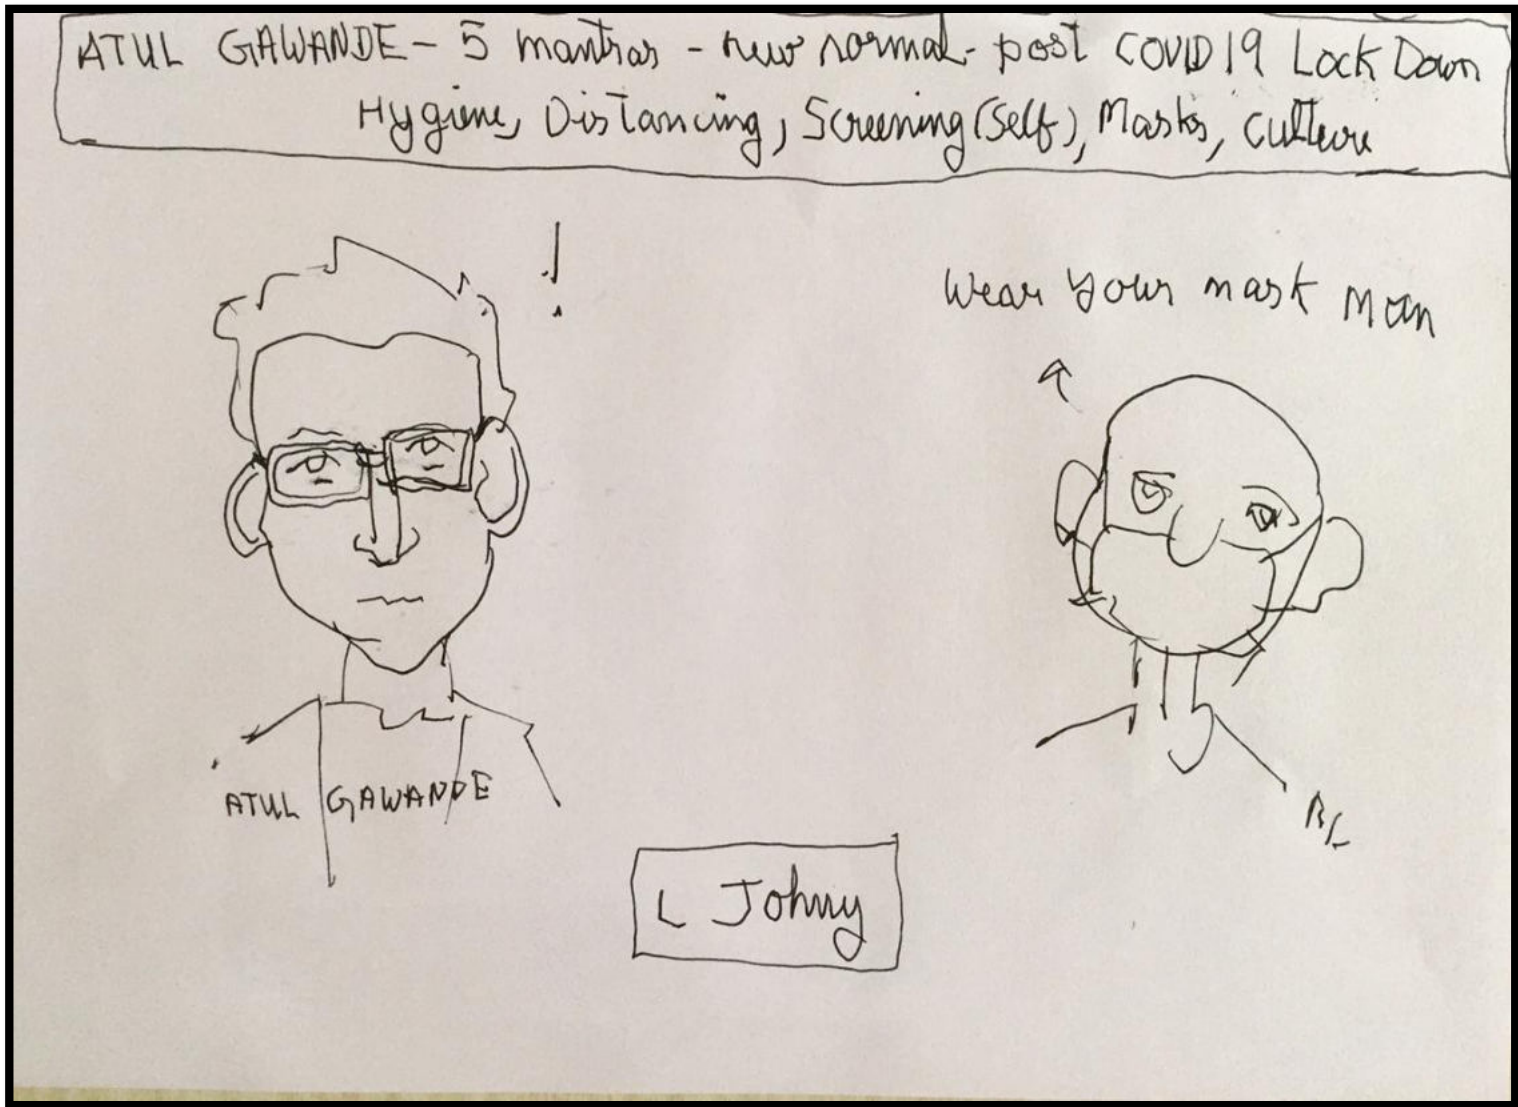 ATUL GAWANDE - 5 mantras - new normal - post COVID19 Lock Down
Hygiene, Distancing, Screening (Self), Masks, Culture
!
Wear your mask man
ATUL GAWANDE
L Johny